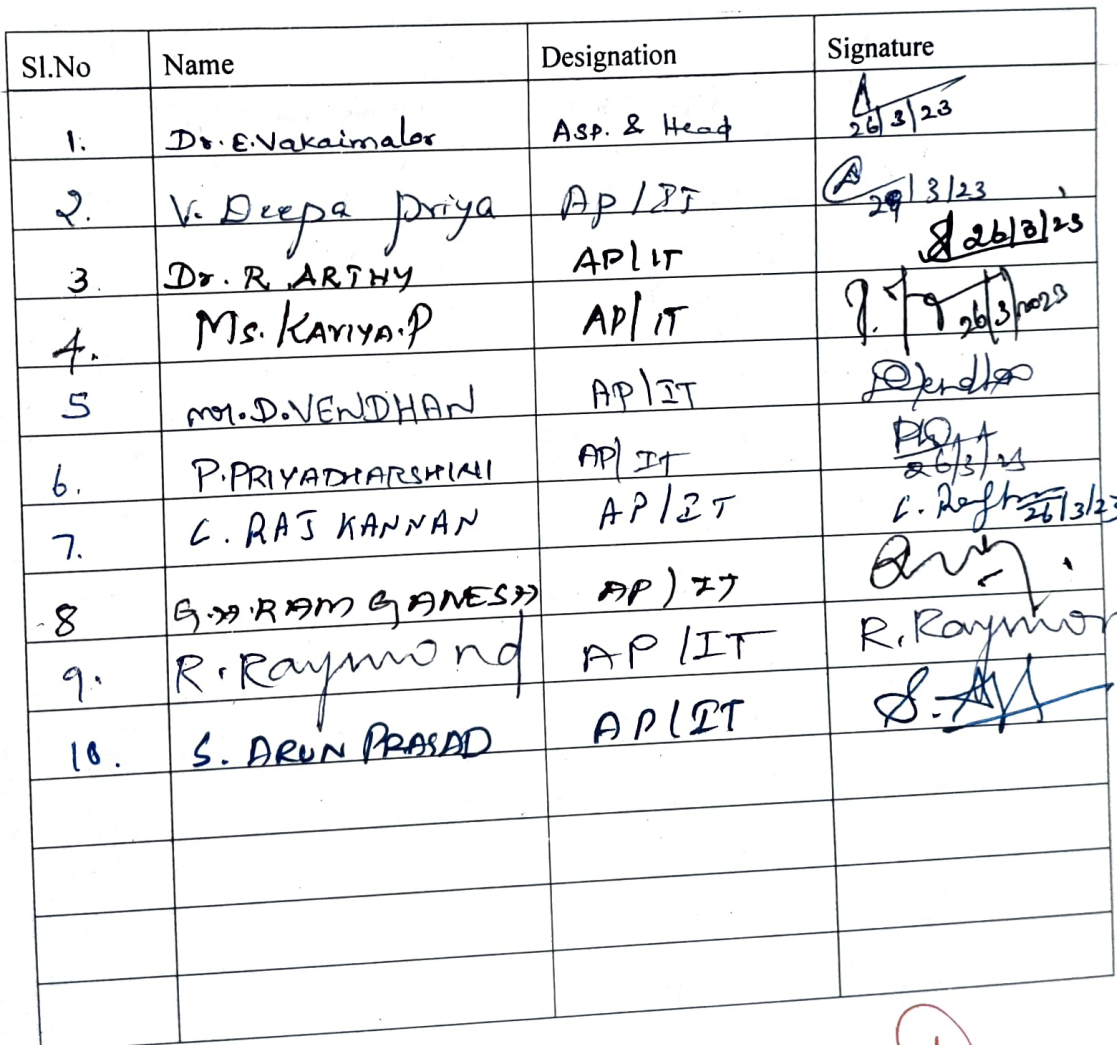 Sl.No Name Designation Signature
1. Dr. E. Vakaimalar Asp. & Head 26/3/23
2. V. Deepa Priya AP/IT 3/23
3. Dr. R. ARTHY AP/IT 26/3/23
4. Ms. KAVIYA.P AP/IT 26/3/2023
5 Mr. D. VENDHAN AP/IT
6. P. PRIYADHARSHINI AP/IT 26/3/23
7. C. RAJ KANNAN AP/IT 26/3/23
8 G.H. RAM GANESH AP/IT
9. R. Raymond AP/IT R. Raymon
10. S. ARUN PRASAD AP/IT